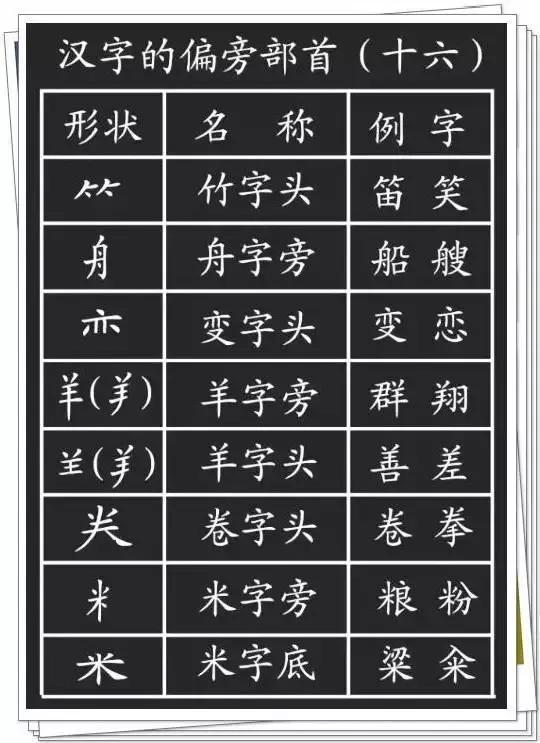 汉字的偏旁部首（十六）
形状 名 称 例 字
⺮ 竹字头 笛 笑
舟 舟字旁 船 艘
亦 变字头 变 恋
羊(⺶) 羊字旁 群 翔
⺷(⺶) 羊字头 善 差
龹 卷字头 卷 拳
米 米字旁 粮 粉
米 米字底 粱 籴